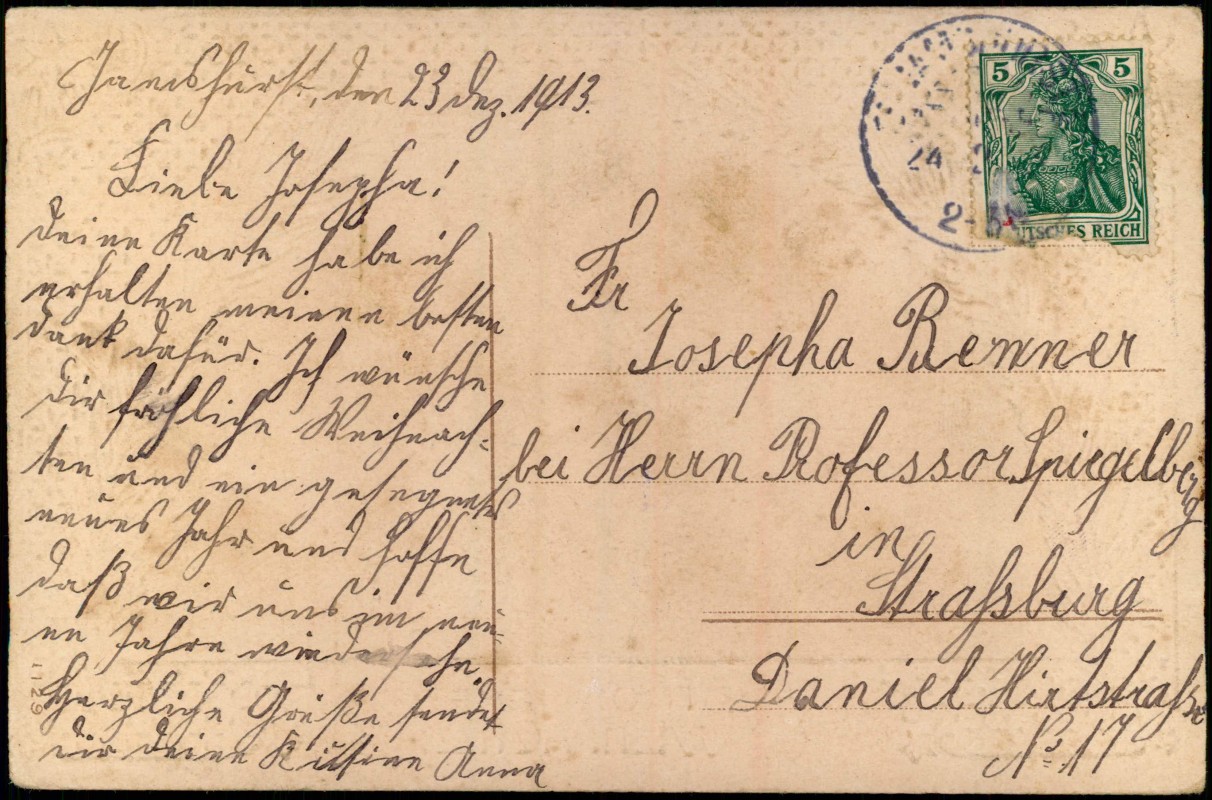 Gamshurst, den 23 Dez. 1913.
Liebe Josepha!
Deine Karte habe ich
erhalten meinen besten
Dank dafür. Ich wünsche
Dir fröhliche Weihnach-
ten und ein gesegnetes
neues Jahr und hoffe
daß wir uns im neu-
en Jahre wiedersehn.
Herzliche Grüße sendet
dir deine Kusine Anna
1129
5 5
DEUTSCHES REICH
24
2-3N
Fr
Josepha Remner
bei Herrn Professor Spiegelberg
in
Straßburg
Daniel Hirtstraße
No. 17